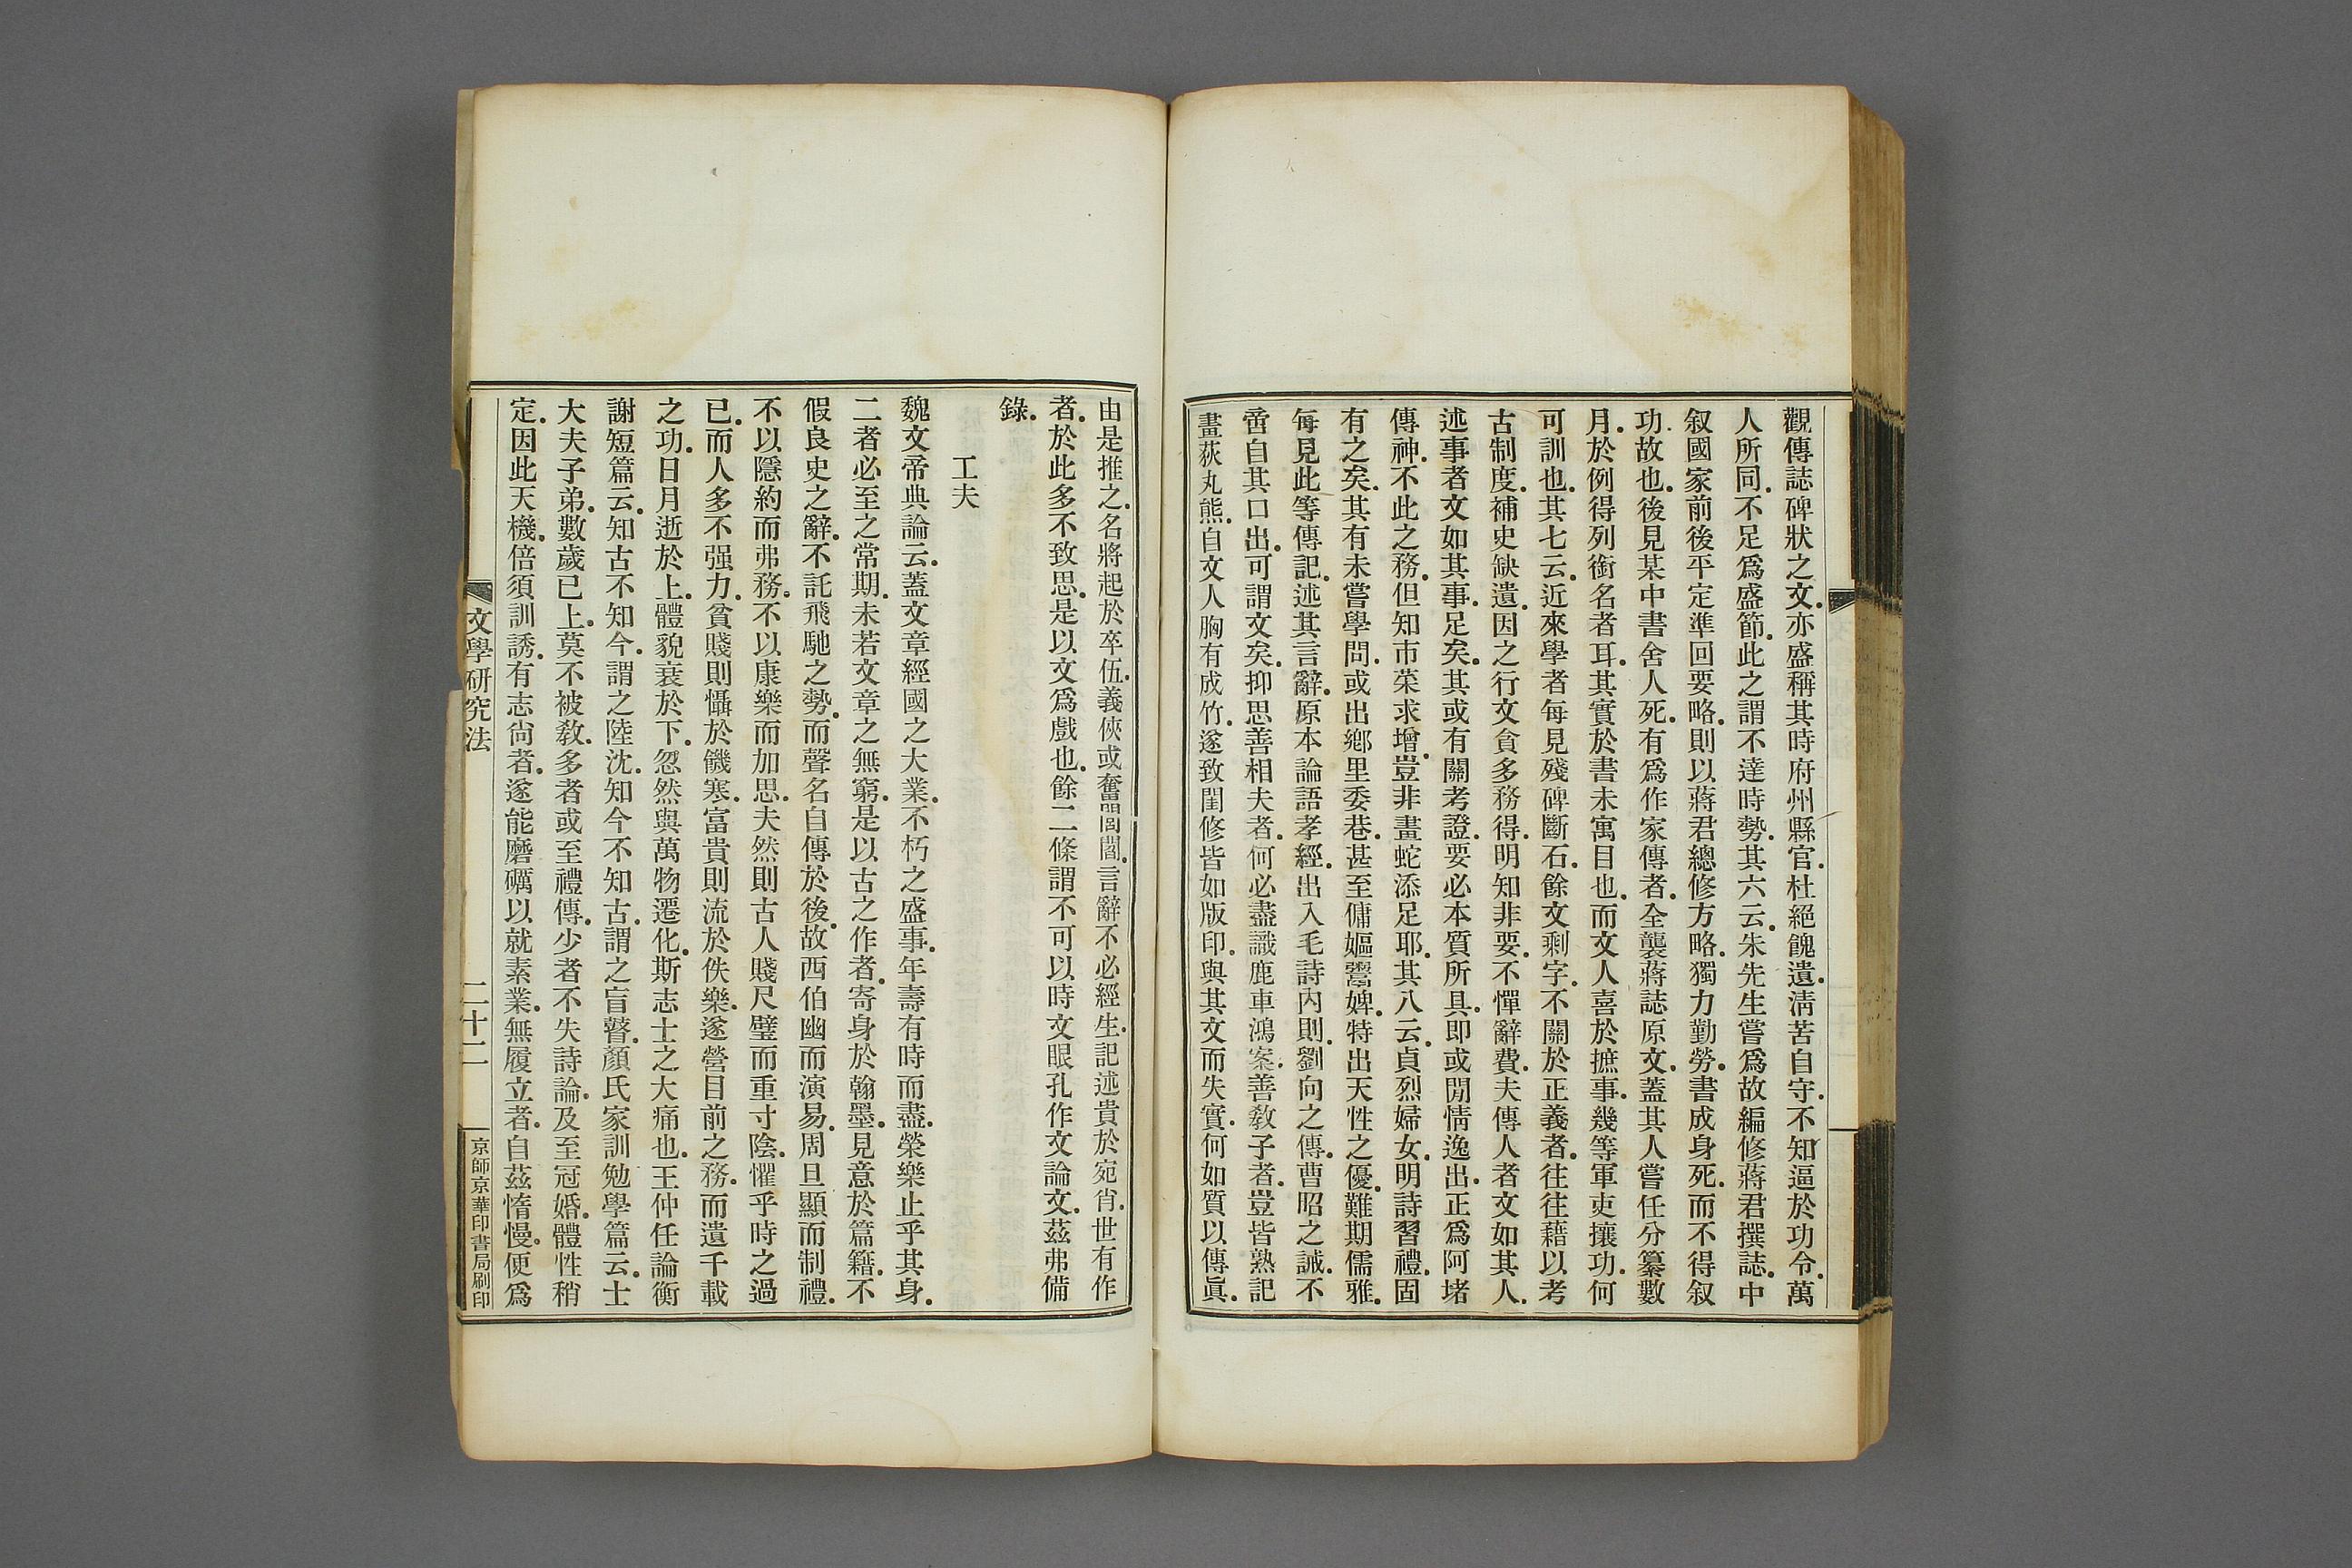 觀傳誌碑狀之文.亦盛稱其時府州縣官.杜絕餽遺.淸苦自守.不知逼於功令.萬
人所同.不足爲盛節.此之謂不達時勢.其六云.朱先生嘗爲故編修蔣君撰誌.中
叙國家前後平定準回要略.則以蔣君總修方略.獨力勤勞.書成身死.而不得叙
功故也.後見某中書舍人死.有爲作家傳者.全襲蔣誌原文.蓋其人嘗任分纂數
月.於例得列銜名者耳.其實於書未寓目也.而文人喜於摭事.幾等軍吏攘功.何
可訓也.其七云.近來學者每見殘碑斷石.餘文剩字.不關於正義者.往往藉以考
古制度.補史缺遺.因之行文貪多務得.明知非要.不憚辭費.夫傳人者文如其人.
述事者文如其事.足矣.其或有關考證.要必本質所具.即或閒情逸出.正爲阿堵
傳神.不此之務.但知市菜求增.豈非畫蛇添足耶.其八云.貞烈婦女.明詩習禮.固
有之矣.其有未嘗學問.或出鄕里委巷.甚至傭嫗鬻婢.特出天性之優.難期儒雅.
每見此等傳記.述其言辭.原本論語孝經.出入毛詩內則.劉向之傳.曹昭之誡.不
啻自其口出.可謂文矣.抑思善相夫者.何必盡識鹿車鴻案.善敎子者.豈皆熟記
畫荻丸熊.自文人胸有成竹.遂致閨修皆如版印.與其文而失實.何如質以傳眞.
由是推之.名將起於卒伍.義俠或奮閭閻.言辭不必經生.記述貴於宛肖.世有作
者.於此多不致思.是以文爲戲也.餘二條謂不可以時文眼孔作文論文.茲弗備
錄.
工夫
魏文帝典論云.蓋文章經國之大業.不朽之盛事.年壽有時而盡.榮樂止乎其身.
二者必至之常期.未若文章之無窮.是以古之作者.寄身於翰墨.見意於篇籍.不
假良史之辭.不託飛馳之勢.而聲名自傳於後.故西伯幽而演易.周旦顯而制禮.
不以隱約而弗務.不以康樂而加思.夫然則古人賤尺璧而重寸陰.懼乎時之過
已.而人多不强力.貧賤則懾於饑寒.富貴則流於佚樂.遂營目前之務.而遺千載
之功.日月逝於上.體貌衰於下.忽然與萬物遷化.斯志士之大痛也.王仲任論衡
謝短篇云.知古不知今.謂之陸沈.知今不知古.謂之盲瞽.顏氏家訓勉學篇云.士
大夫子弟.數歲已上.莫不被敎.多者或至禮傳.少者不失詩論.及至冠婚.體性稍
定.因此天機.倍須訓誘.有志尙者.遂能磨礪以就素業.無履立者.自茲惰慢.便爲
文學研究法
二十二
京師京華印書局刷印